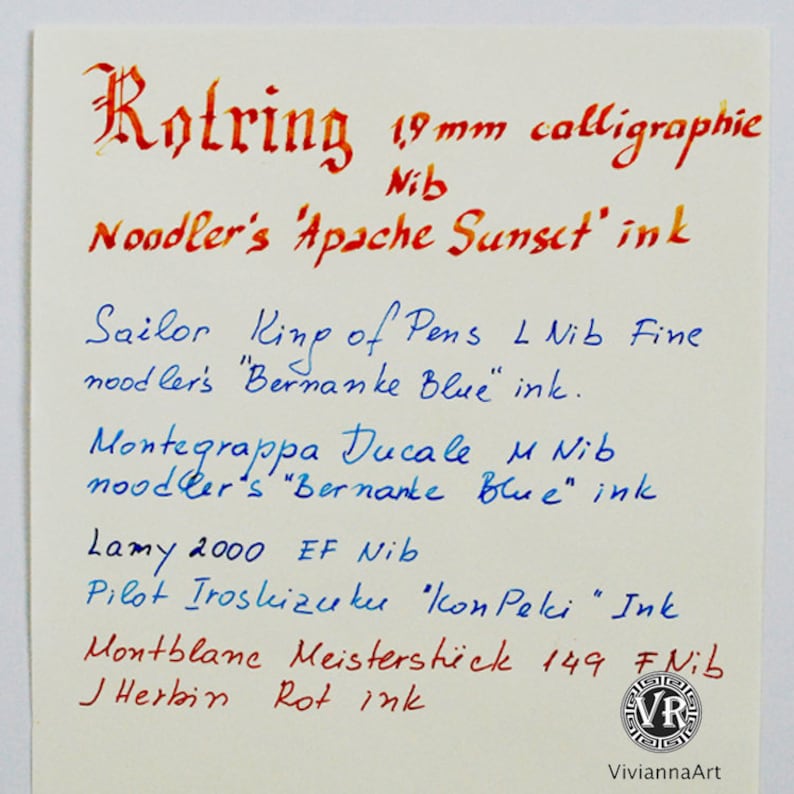 Rotring 1,9mm calligraphie
Nib
Noodler's 'Apache Sunset' ink
Sailor King of Pens L Nib Fine
noodler's "Bernanke Blue" ink.
Montegrappa Ducale M Nib
noodler's "Bernanke Blue" ink
Lamy 2000 EF Nib
Pilot Iroshizuku "KonPeki" Ink
Montblanc Meisterstück 149 F Nib
J Herbin Rot ink
VR
ViviannaArt